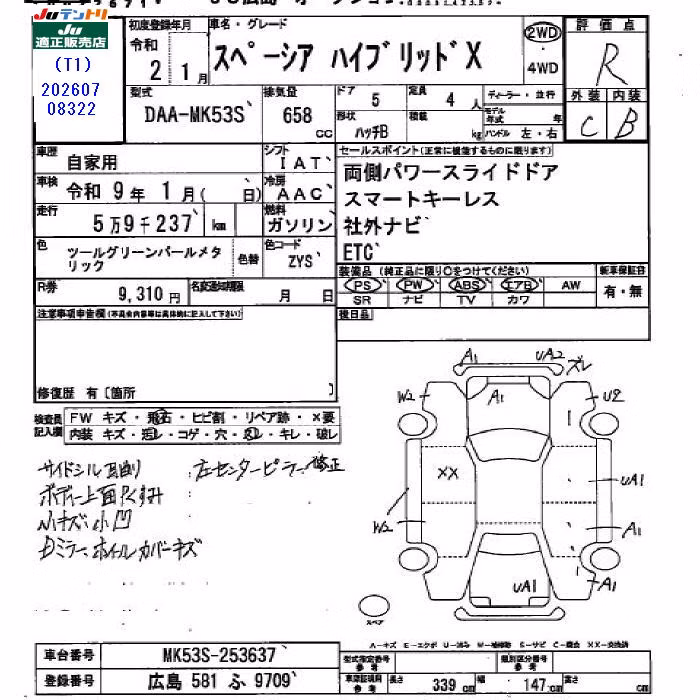 JUテントリ
JU
適正販売店
(T1)
202607
08322
初度登録年月
令和
2 1月
車名・グレード
スペーシア ハイブリッドX
2WD
4WD
評価点
R
外装 内装
C B
型式
DAA-MK53S
排気量
658
cc
ドア
5
定員
4 人
ディーラー・並行
形状
ハッチB
積載
kg
モデル年式
年
ハンドル 左・右
車歴
自家用
シフト
IAT
車検
令和 9年 1月( 日)
冷房
AAC
走行
5万9千237 km
燃料
ガソリン
色
ツールグリーンパールメタリック
色替
色コード
ZYS
R券
9,310 円
名変通知期限
月 日
セールスポイント(正常に機能するものに限ります)
両側パワースライドドア
スマートキーレス
社外ナビ
ETC
装備品(純正品に限り○をつけてください)
新車保証書
PS PW ABS エアB AW
有・無
SR ナビ TV カワ
後日品
注意事項申告欄(不具合内容等は具体的に記入して下さい)
修復歴 有〔箇所 〕
検査員記入欄
FW キズ・飛石・ヒビ割・リペア跡・×要
内装 キズ・汚レ・コゲ・穴・スレ・キレ・破レ
サイドシル凹削
左センターピラー修正
ボディー上面くすみ
小キズ小凹
ドミラー、ホイルカバーキズ
A1
UA2
ズレ
W2
A1
U2
XX
UA1
W2
A1
UA1
A1
スペア
A-キズ E-エクボ U-凹み W-補修跡 S-サビ C-腐食 XX-交換済
車台番号
MK53S-253637
登録番号
広島 581 ふ 9709
型式指定番号
参考
類別区分番号
参考
車庫証明用
参考
長さ
339 cm
幅
147 cm
高さ
cm